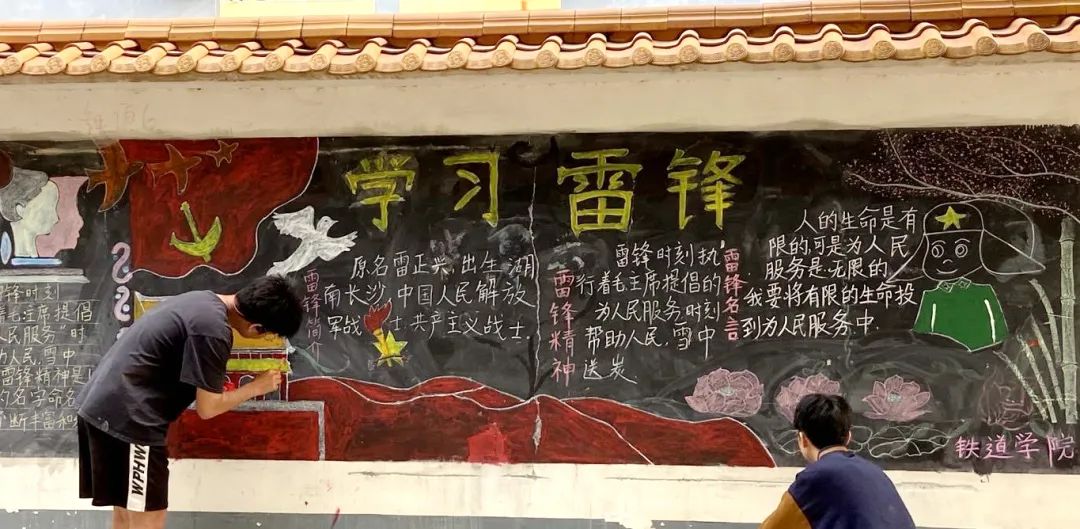 学习雷锋
锋时刻
毛主席提倡
人民服务"时
为人民,雪中
雷锋精神是
的名字命名
断丰富和
雷锋简介
原名雷正兴,出生湖
南长沙,中国人民解放
军战士,共产主义战士.
雷锋精神
雷锋时刻执
行着毛主席提倡的
为人民服务,时刻
帮助人民,雪中
送炭
雷锋名言
人的生命是有
限的,可是为人民
服务是无限的
我要将有限的生命投
到为人民服务中.
铁道学院
WPHW